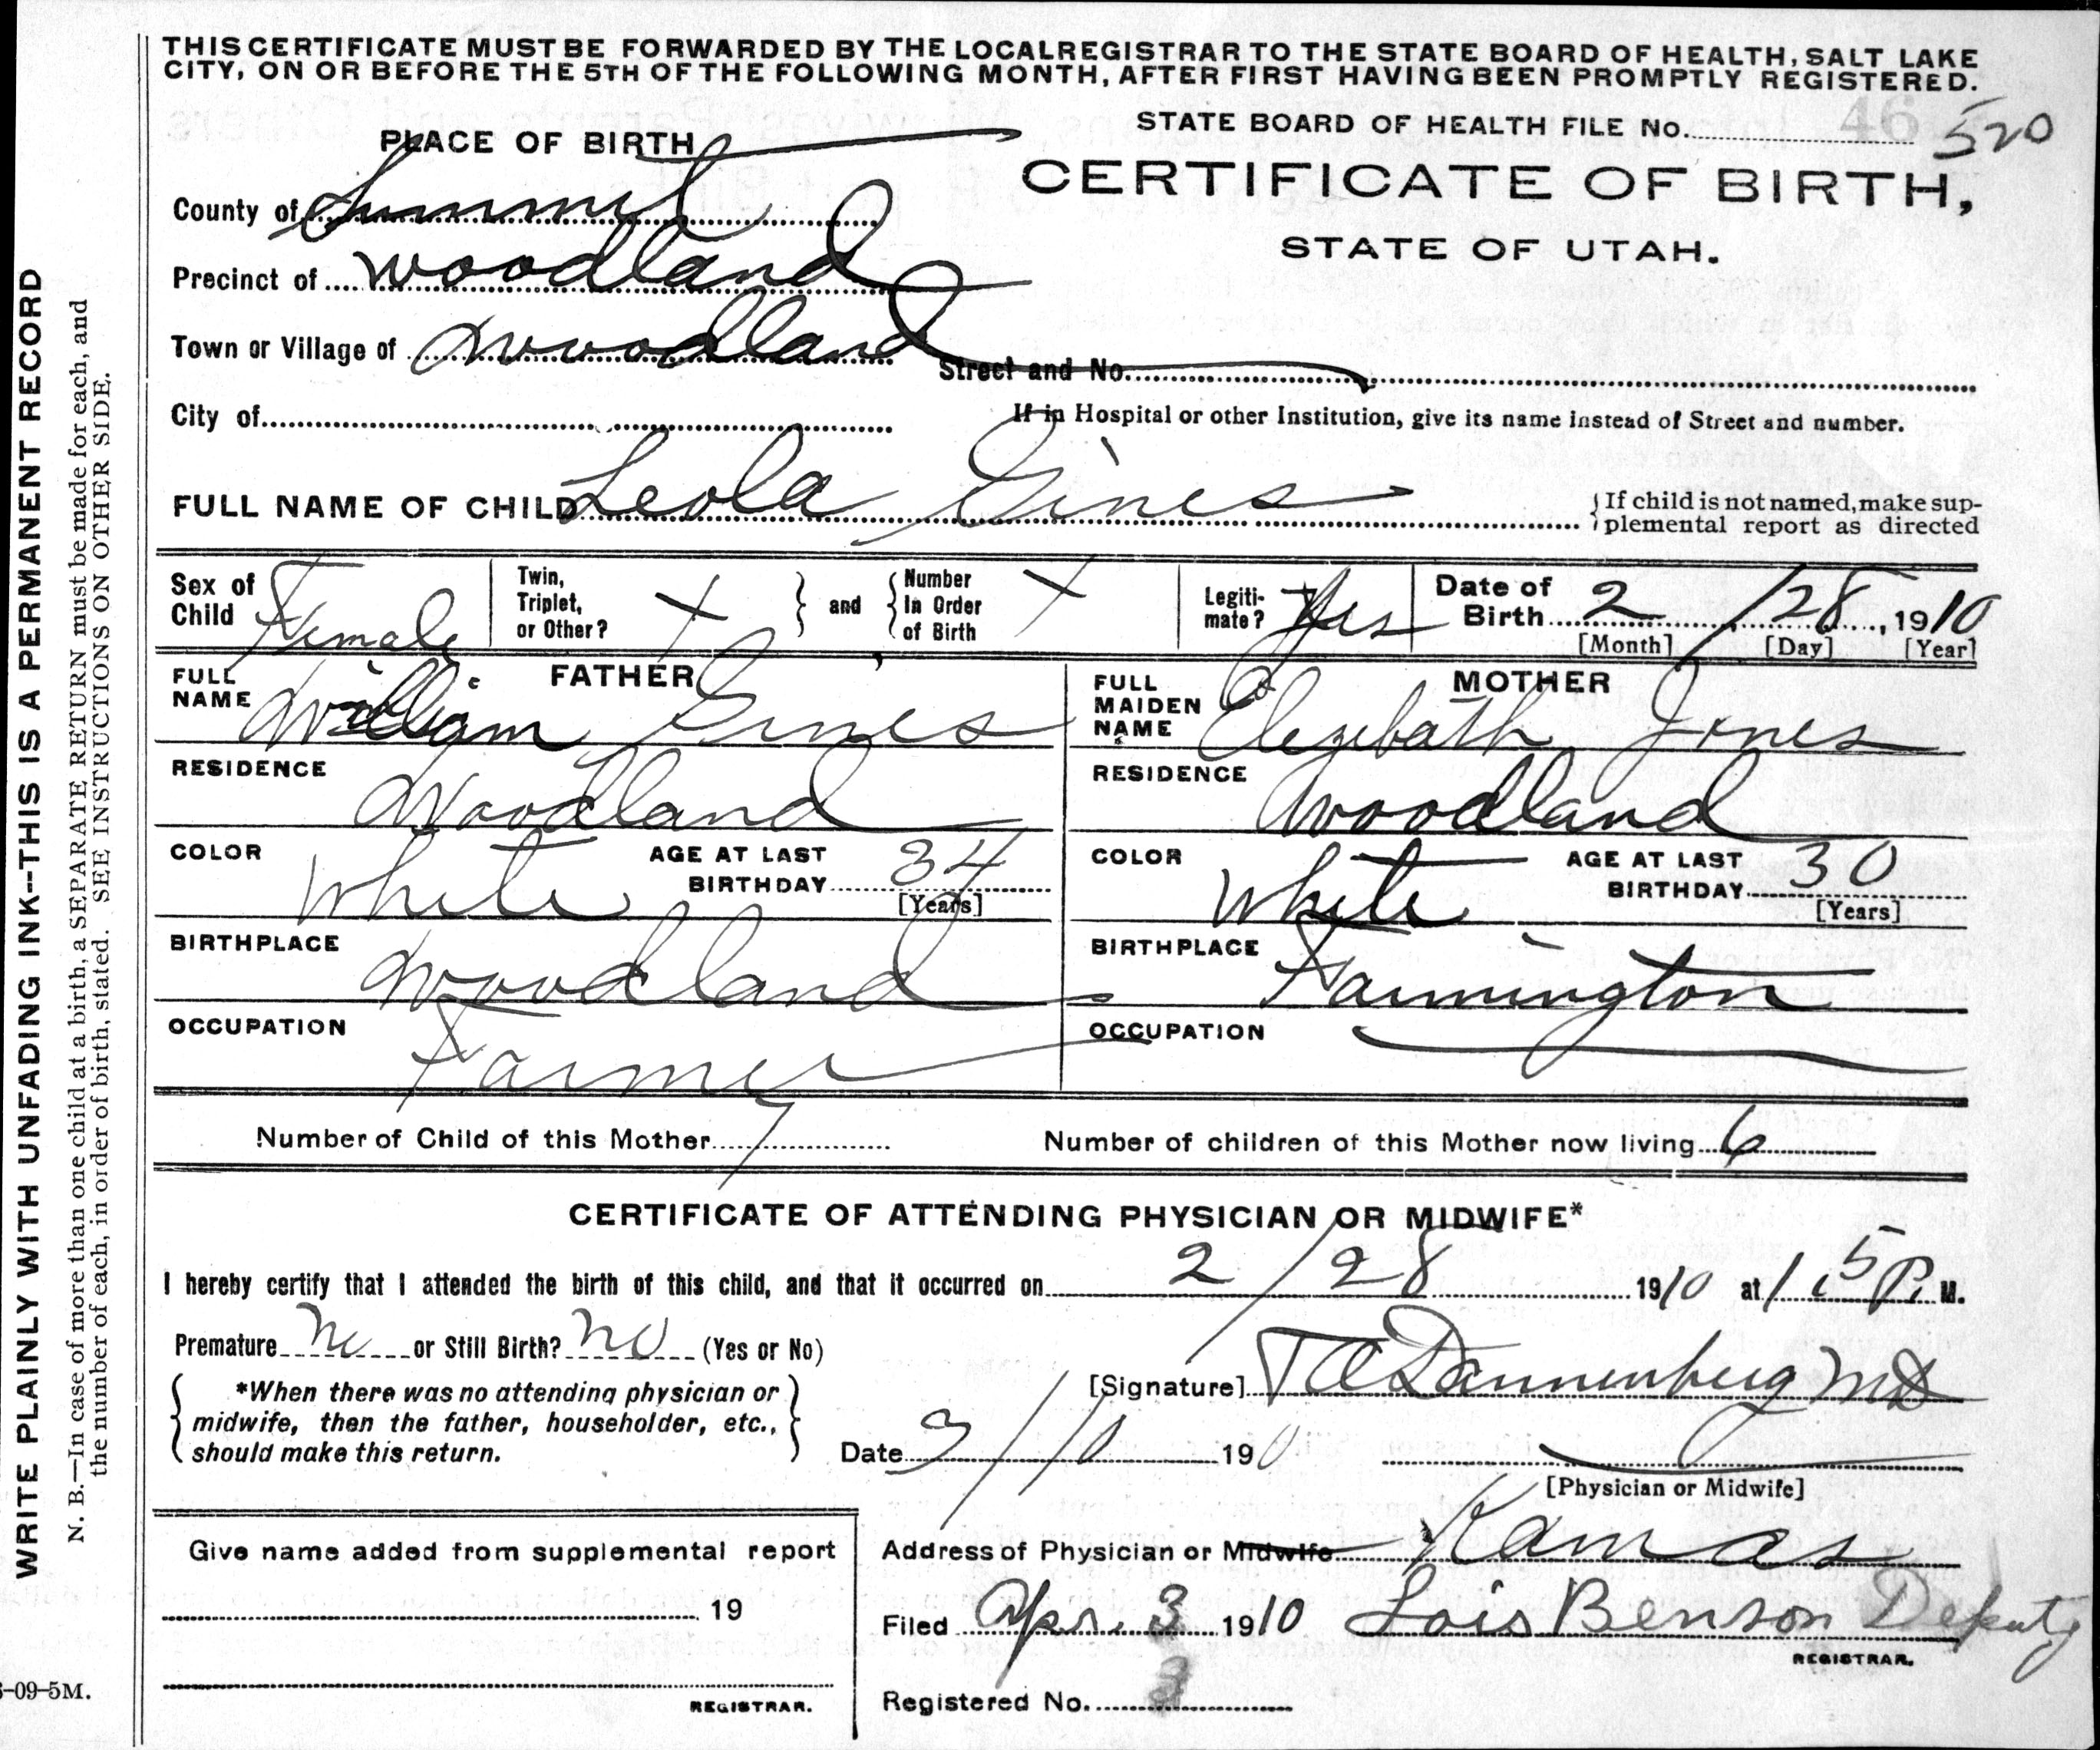 THIS CERTIFICATE MUST BE FORWARDED BY THE LOCAL REGISTRAR TO THE STATE BOARD OF HEALTH, SALT LAKE
CITY, ON OR BEFORE THE 5TH OF THE FOLLOWING MONTH, AFTER FIRST HAVING BEEN PROMPTLY REGISTERED.
PLACE OF BIRTH
STATE BOARD OF HEALTH FILE No. 46 520
CERTIFICATE OF BIRTH,
STATE OF UTAH.
County of Summit
Precinct of Woodland
Town or Village of Woodland
Street and No.
City of
If in Hospital or other Institution, give its name instead of Street and number.
FULL NAME OF CHILD Leola Gines
{If child is not named, make sup-
plemental report as directed
Sex of Child Female
Twin, Triplet, or Other? X } and { Number In Order of Birth X
Legiti-mate? Yes
Date of Birth 2 / 28, 1910
[Month] [Day] [Year]
FATHER
FULL NAME William Gines
RESIDENCE Woodland
COLOR White AGE AT LAST BIRTHDAY 34
[Years]
BIRTHPLACE Woodland
OCCUPATION Farmer
MOTHER
FULL MAIDEN NAME Elezebath Jones
RESIDENCE Woodland
COLOR White AGE AT LAST BIRTHDAY 30
[Years]
BIRTHPLACE Farmington
OCCUPATION
Number of Child of this Mother 7 Number of children of this Mother now living 6
CERTIFICATE OF ATTENDING PHYSICIAN OR MIDWIFE*
I hereby certify that I attended the birth of this child, and that it occurred on 2/28 1910 at 1:5 P. M.
Premature No or Still Birth? No (Yes or No)
*When there was no attending physician or
midwife, then the father, householder, etc.,
should make this return.
[Signature] Dannenberg MD
Date 3/10 190
[Physician or Midwife]
Give name added from supplemental report
19
REGISTRAR.
Address of Physician or Midwife Kamas
Filed Apr. 3 1910 Lois Benson Deputy
REGISTRAR.
Registered No. 3
WRITE PLAINLY WITH UNFADING INK--THIS IS A PERMANENT RECORD
N. B.—In case of more than one child at a birth, a SEPARATE RETURN must be made for each, and
the number of each, in order of birth, stated. SEE INSTRUCTIONS ON OTHER SIDE.
-09-5M.